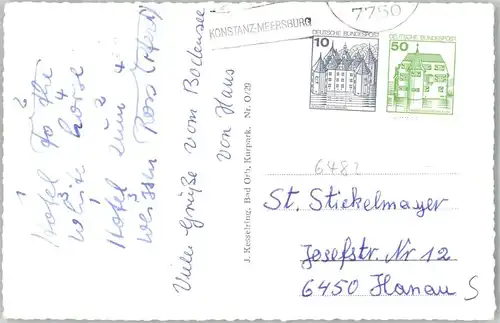 KONSTANZ-MEERSBURG
7750
DEUTSCHE BUNDESPOST
10
DEUTSCHE BUNDESPOST
50
1 2
Hotel To the
3 4
White horse
1 2
Hotel zum
3 4
weissen Ross
Viele Grüße vom Bodensee
von Hans
J. Kesselring, Bad Orb, Kurpark. Nr. O/29
6482
St. Stickelmayer
Josefstr. Nr 12
6450 Hanau S